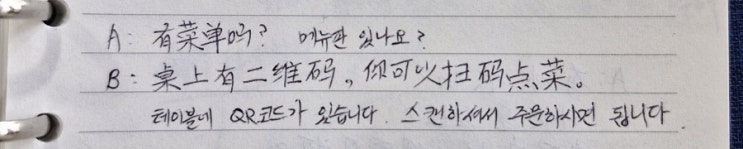 A: 有菜单吗? 메뉴판 있나요?
B: 桌上有二维码, 你可以扫码点菜。
테이블에 QR코드가 있습니다. 스캔하셔서 주문하시면 됩니다.